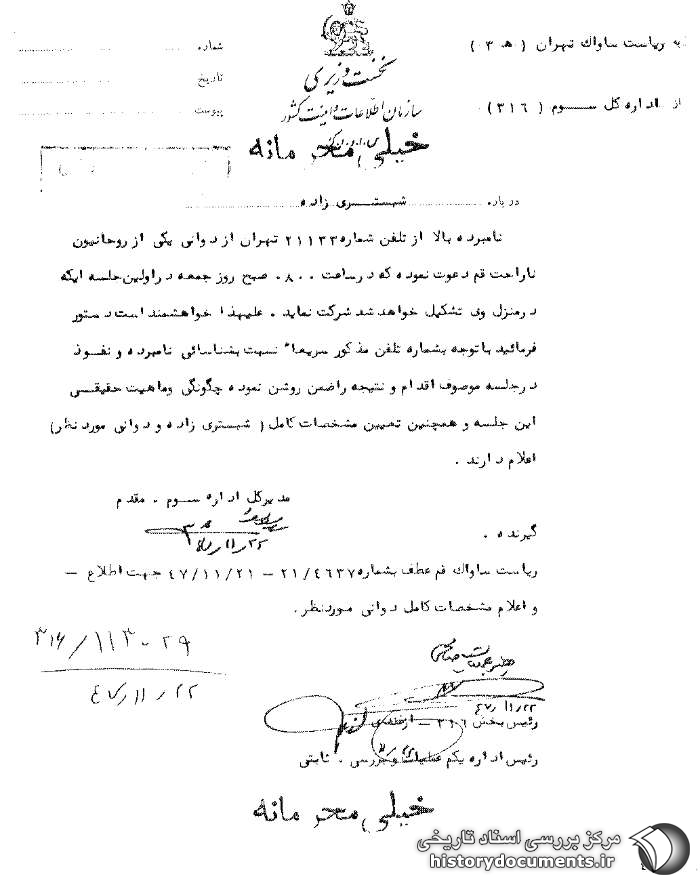 به ریاست ساواک تهران ( هـ ۳ )
از اداره کل سوم ( ۳۱۶ )
نخست وزیری
سازمان اطلاعات و امنیت کشور
شماره
تاریخ
پیوست
خیلی محرمانه
درباره شبستری زاده
نامبرده بالا از تلفن شماره ۲۱۱۳۳ تهران از دوانی یکی از روحانیون
ناراحت قم دعوت نموده که در ساعت ۰۸۰۰ صبح روز جمعه در اولین جلسه ایکه
در منزل وی تشکیل خواهد شد شرکت نماید . علیهذا خواهشمند است دستور
فرمائید با توجه بشماره تلفن مذکور سریعا" نسبت بشناسائی نامبرده و نفوذ
در جلسه موصوف اقدام و نتیجه را ضمن روشن نموده چگونگی و ماهیت حقیقی
این جلسه و همچنین تعیین مشخصات کامل ( شبستری زاده و دوانی مورد نظر )
اعلام دارند .
مدیر کل اداره سوم . مقدم
۴۷/۱۱/۲۲
گیرنده .
ریاست ساواک قم عطف بشماره ۲۱/۴۶۳۷ – ۴۷/۱۱/۲۱ جهت اطلاع –
و اعلام مشخصات کامل دوانی مورد نظر .
۳۱۶/۱۱۳۰۲۹
۴۷/۱۱/۲۲
۴۷/۱۱/۲۲
رئیس بخش ۳۱۶ –
رئیس اداره یکم عملیات و بررسی . ثابتی
خیلی محرمانه
مرکز بررسی اسناد تاریخی
historydocuments.ir